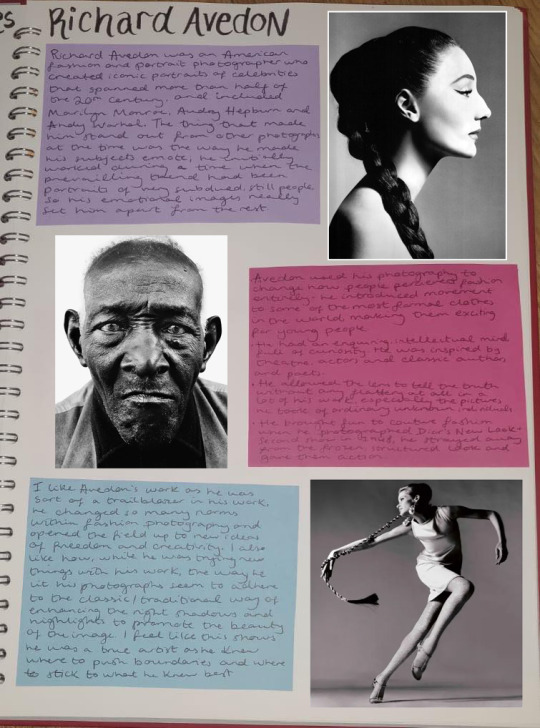 es
Richard Avedon
Richard Avedon was an American
fashion and portrait photographer who
created iconic portraits of celebrities
that spanned more than half of
the 20th century, and included
Marilyn Monroe, Audrey Hepburn and
Andy Warhol. The thing that made
him stand out from other photographs
at the time was the way he made
his subjects emote, he initially
worked during a time when the
prevailling trend had been
portraits of very subdued, still people
so his emotional images really
set him apart from the rest
Avedon used his photography to
change how people perceived fashion
entirely - he introduced movement
to some of the most formal clothes
in the world, making them exciting
for young people
• He had an enquiring, intellectual mind
full of curiosity. He was inspired by
theatre, actors and classic authors
and poets.
• He allowed the lens to tell the truth
without any flattery at all in a
lot of his work, especially the pictures
he took of ordinary unknown individuals
• He brought fun to couture fashion
when he photographed Dior's New Look
second show in 1948, he strayed away
from the frozen, structured look and
gave them action
I like Avedon's work as he was
sort of a trailblazer in his work,
he changed so many norms
within fashion photography and
opened the field up to new ideas
of freedom and creativity. I also
like how, while he was trying new
things with his work, the way he
lit his photographs seem to adhere
to the classic/traditional way of
enhancing the right shadows and
highlights to promote the beauty
of the image. I feel like this shows
he was a true artist as he knew
where to push boundaries and where
to stick to what he knew best